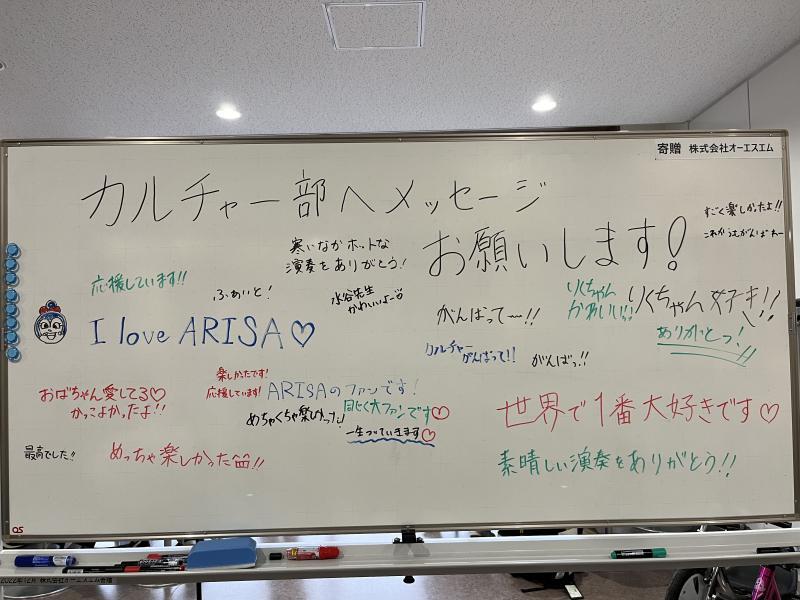 寄贈 株式会社オーエスエム
カルチャー部へメッセージ
お願いします!
すごく楽しかったよ!!
これからもがんばれー
寒いなかホットな
演奏をありがとう!
応援しています!!
ふぁいと!
水谷先生
かわいいよー
がんばって〜!!
りくちゃん
かわいい!!
りくちゃん好き!!
ありがとっ!
I love ARISA♡
カルチャー
がんばって!!
がんばっ!!
楽しかったです!
応援しています!
ARISAのファンです!
おばちゃん愛してる♡
かっこよかったよ!!
めちゃくちゃ楽しかった!
同じく大ファンです♡
一生ついていきます♡
世界で1番大好きです♡
最高でした!!
めっちゃ楽しかった!!
素晴しい演奏をありがとう!!
OS
2022年12月 株式会社オーエスエム寄贈